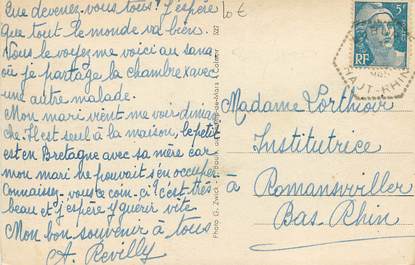 Que devenez-vous tous ? J'espère
que tout le monde va bien.
Vous le voyez me voici au sana
où je partage la chambre avec
une autre malade.
Mon mari vient me voir dimanche
Il est seul à la maison, le petit
est en Bretagne avec sa mère car
mon mari ne pouvait s'en occuper
Connaissez-vous ce coin-ci ? C'est très
beau et j'espère y guérir vite
Mon bon souvenir à tous
A. Revilly
10 €
5F
RF
HAUT-RHIN
Photo G. Zwick
Colmar
Madame Porthioir
Institutrice
à Romanswiller
Bas-Rhin